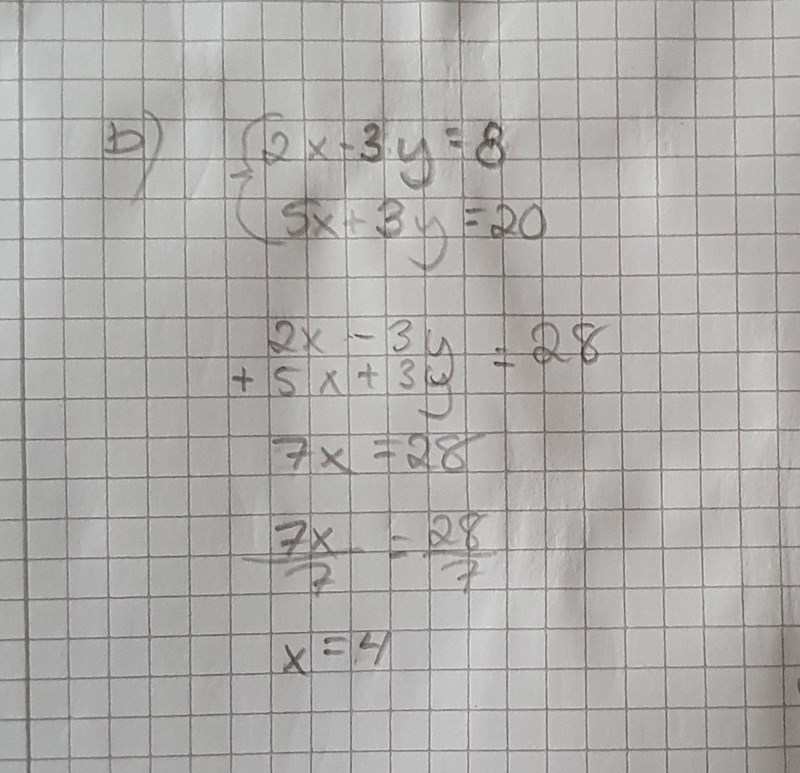 b) { 2x-3y=8
5x+3y=20
2x - 3y
+ 5x + 3y = 28
7x = 28
7x/7 = 28/7
x = 4